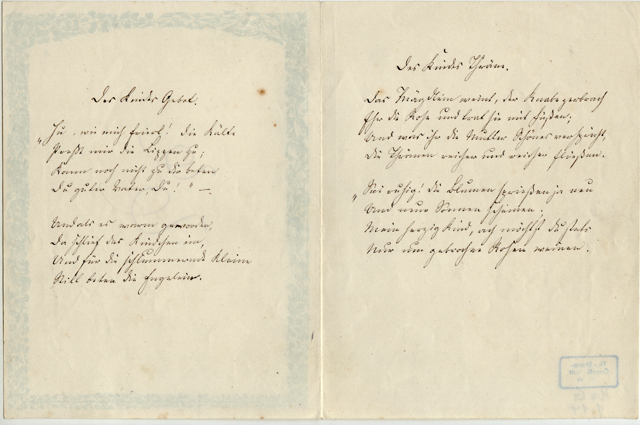 Des Kindes Gebet.
„Hu, wie mich friert! die Kälte
Preßt mir die Lippen zu;
Kann noch nicht zu dir beten
Du guter Vater, Du!" —
Und als es warm geworden,
Da schlief das Kindchen ein,
Und für die schlummernde Kleine
Still beten die Engelein.
Des Kindes Thräne.
Das Mägdlein weint, der Knabe zerbrach
Ihr die Rose und trat sie mit Füßen;
Und was ihr die Mutter Schönes verspricht,
Die Thränen reicher und reicher fließen.
„Sei ruhig! die Blumen sprießen ja neu
Und neue Sonnen scheinen;
Mein herzig Kind, ach möchtst du stets
Nur um gebrochne Rosen weinen.